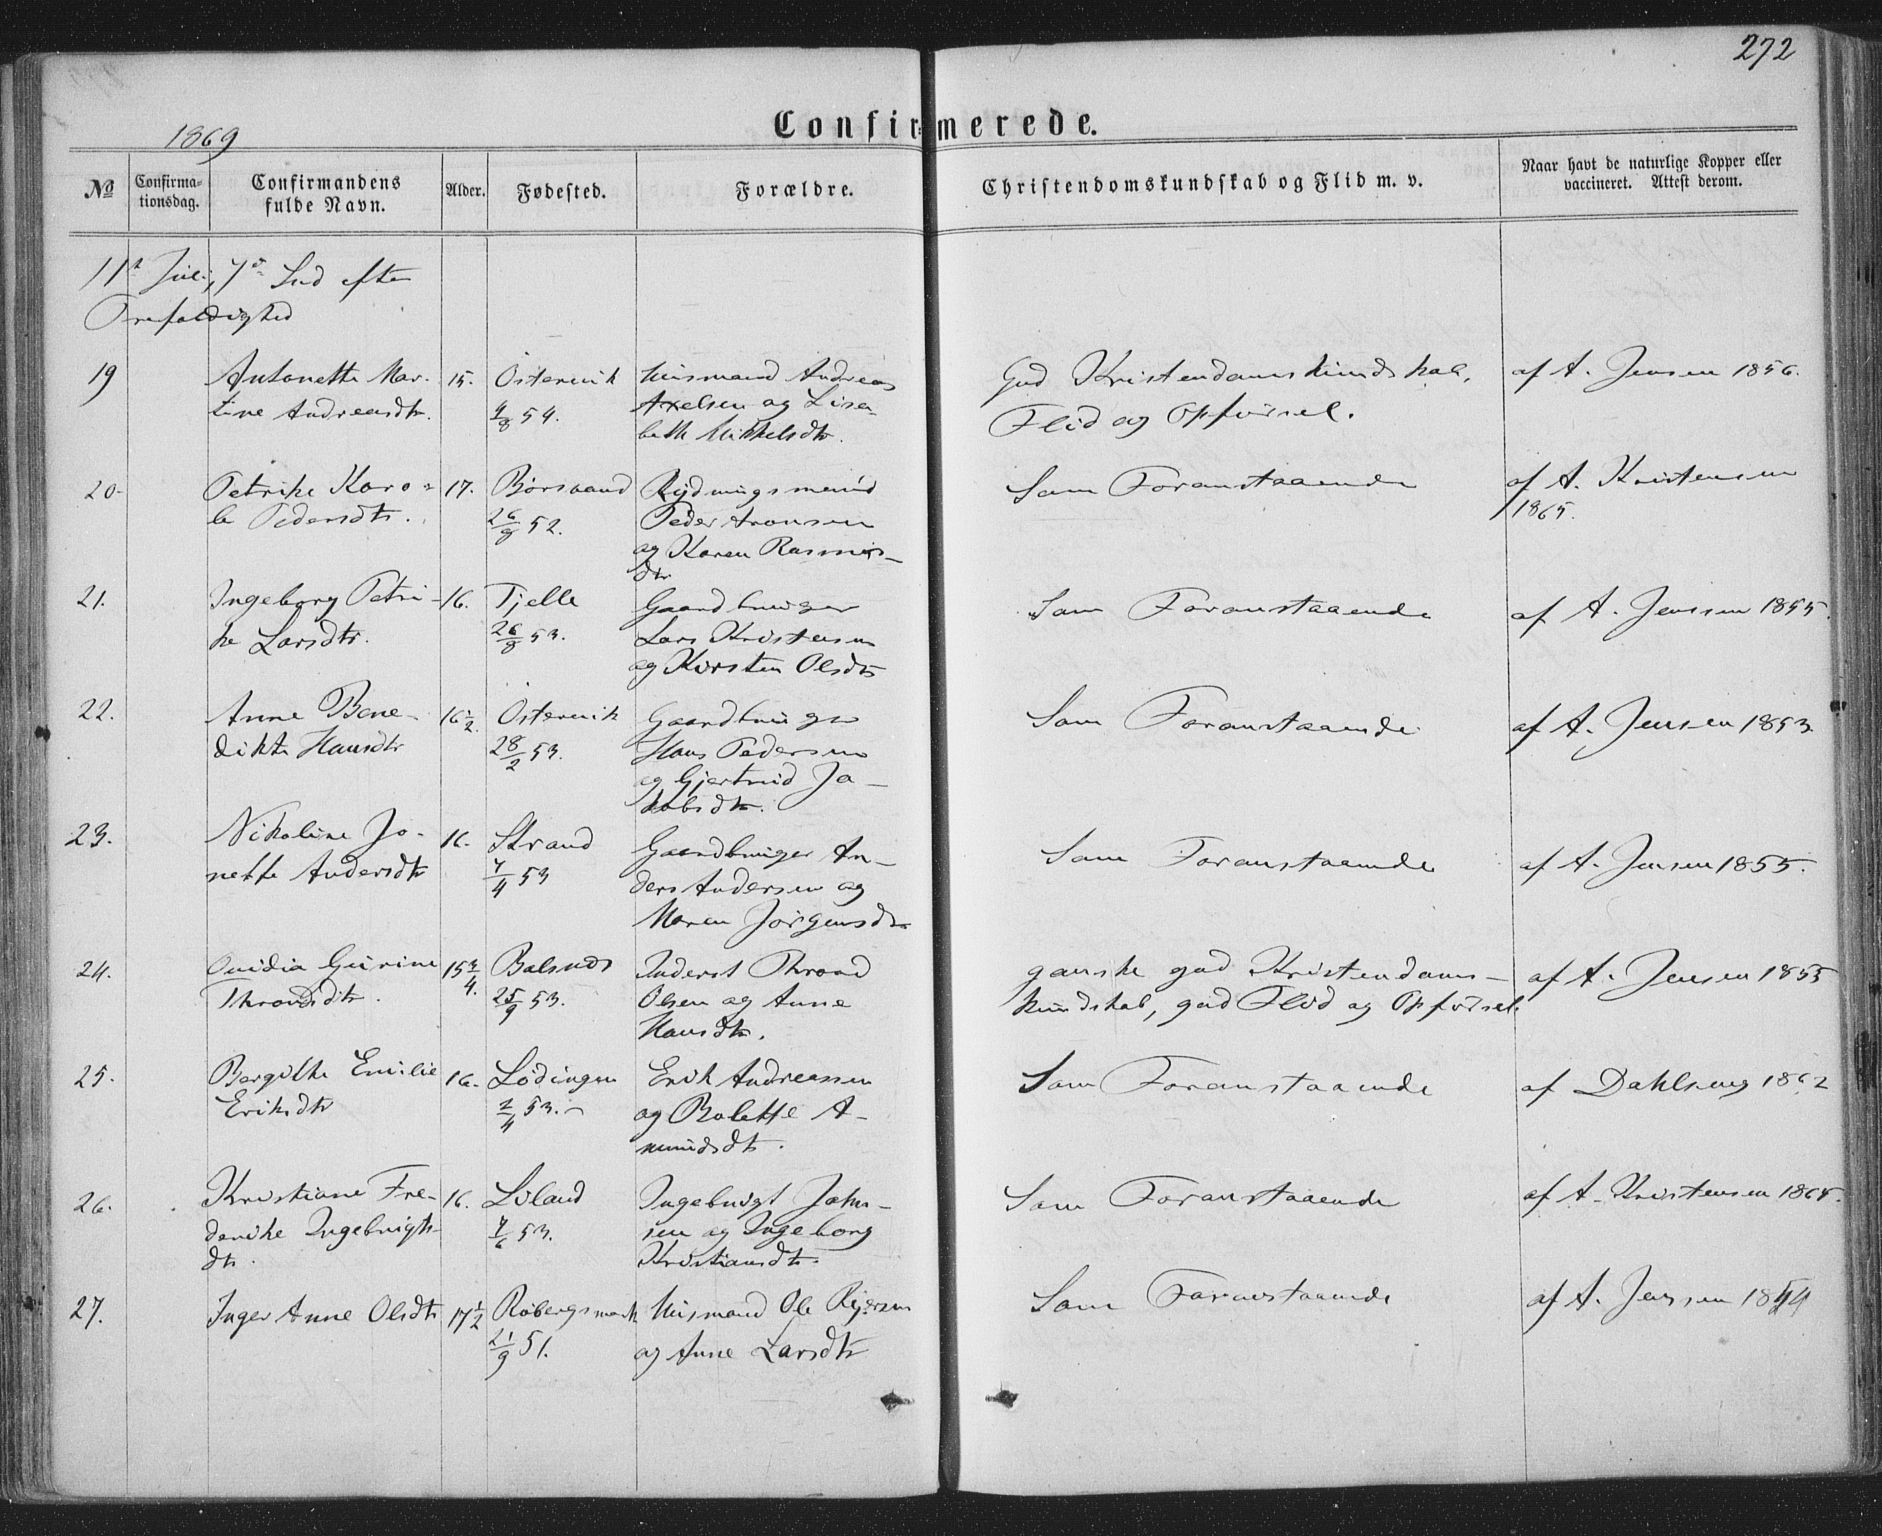 272
1869
Confirmerede.
№
Confirma-
tionsdag.
Confirmandens
fulde Navn.
Alder.
Fødested.
Forældre.
Christendomskundskab og Flid m. v.
Naar havt de naturlige Kopper eller
vaccineret. Attest derom.
11te Juli, 7de Snd efter
Trefoldighed
19 Antonette Mar- 15. Östervik Husmand Andreas God Kristendomskundskab, af A. Jensen 1856.
tine Andreasdtr. 4/8 54. Axelsen og Lisa- Flid og Opförsel.
beth Mikkelsdtr.
20. Petrike Karo- 17. Börsvand Rydningsmand Som Foranstaaende af A. Kristensen
le Pedersdtr. 26/8 52. Peder Aronsen 1865.
og Karen Rasmus-
dtr
21. Ingeborg Petri- 16. Tjelle Gaardbruger Som Foranstaaende af A. Jenssen 1855.
ke Larsdtr. 26/8 53. Lars Kristensen
og Kirsten Olsdtr
22. Anne Bene- 16½ Östervik Gaardbruger Som Foranstaaende af A. Jensen 1853.
dikte Hansdtr 28/2 53. Hans Pedersen
og Gjertrud Ja-
kobsdtr.
23. Nikoline Jo- 16. Strand Gaardbruger An- Som Foranstaaende af A. Jensen 1855.
nette Andersdtr 7/4 53 ders Andersen og
Maren Jörgensdtr
24. Ovidia Gurine 15¾. Balsnes Inderst Thrond ganske god Kristendoms- af A. Jensen 1855
Thronsdtr. 25/9 53. Olsen og Anne kundskab, god Flid og Opförsel.
Hansdtr.
25. Bergithe Emilie 16. Lödingen Erik Andreassen Som Foranstaaende af Dahlseng 1862
Eriksdtr 2/4 53. og Bolette A-
mundsdtr.
26. Kristiane Fre- 16. Liland Ingebrigt John- Som Foranstaaende af A. Kristensen 1865.
derike Ingebrigts- 7/6 53. sen og Ingeborg
dtr. Kristiansdtr.
27. Inger Anne Olsdtr 17½ Röbergsmark Husmand Ole Rejersen Som Foranstaaende af A. Jenssen 1854
21/9 51. og Anne Larsdtr